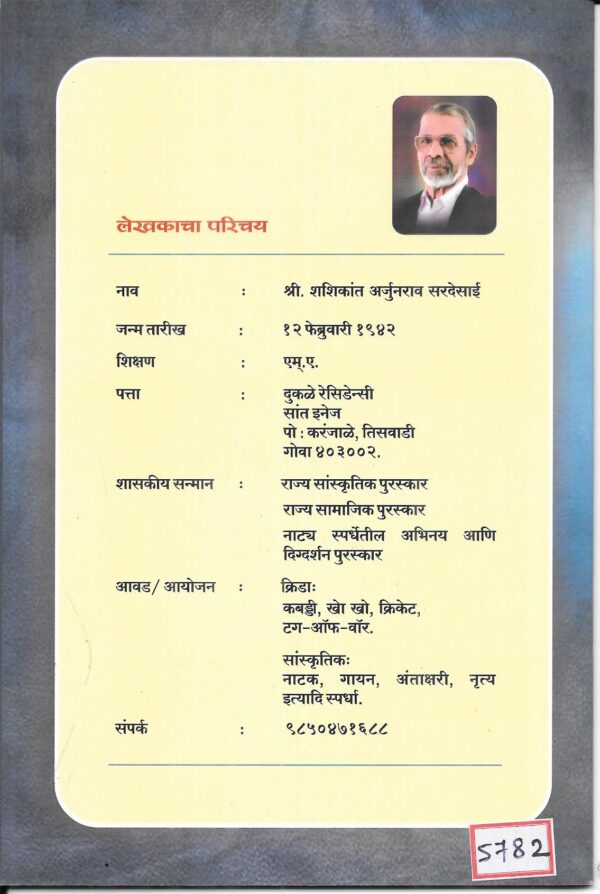 लेखकाचा परिचय
नाव : श्री. शशिकांत अर्जुनराव सरदेसाई
जन्म तारीख : १२ फेब्रुवारी १९४२
शिक्षण : एम्.ए.
पत्ता : दुकळे रेसिडेन्सी
सांत इनेज
पो : करंजाळे, तिसवाडी
गोवा ४०३००२.
शासकीय सन्मान : राज्य सांस्कृतिक पुरस्कार
राज्य सामाजिक पुरस्कार
नाट्य स्पर्धेतील अभिनय आणि
दिग्दर्शन पुरस्कार
आवड/ आयोजन : क्रिडाः
कबड्डी, खो खो, क्रिकेट,
टग-ऑफ-वॉर.
सांस्कृतिकः
नाटक, गायन, अंताक्षरी, नृत्य
इत्यादि स्पर्धा.
संपर्क : ९८५०४७१६८८
5782